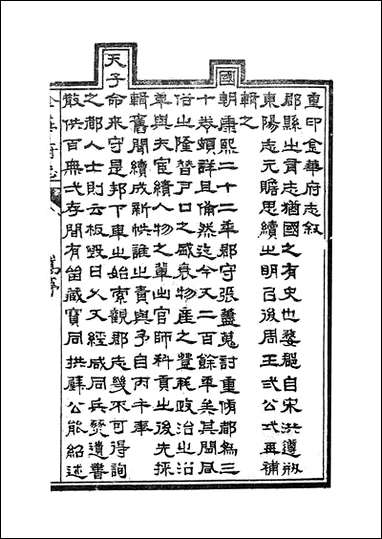 重印金華府志叙
郡縣之有志猶國之有史也婺郡自宋洪遵刱
東陽志元贍思續之明㠯後周王弍公弍再補
輯之
國
朝康熙二十二年郡守張藎蒐討重脩郡為三
十卷頗詳且備然迄今又二百餘年矣其間風
俗之隆替戶口之盛衰物產之豐耗政治之沿
革與夫宦績人物之輩出官師科貢之後先採
輯舊聞續成新帙誰之責與予自丙午奉
天子命來守是邦下車之始索觀郡志幾不可得詢
之郡人士則云板毀日久又經咸同兵燹遺書
散佚百無弌存間有畱藏寶同拱璧公能紹述
金華府志